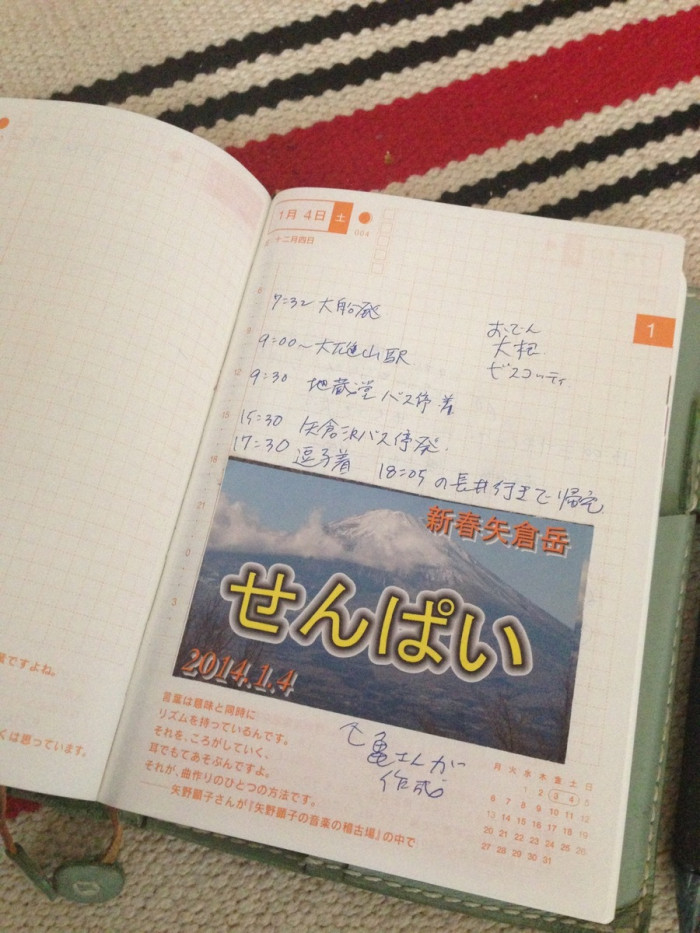 1月 4日 土
004
十二月四日
1
7:32 大船発
おでん
大根
ビスコッティ
9:00〜大雄山駅
9:30 地蔵堂バス停着
15:30 矢倉沢バス停発.
17:30 逗子着 18:05の長井行きで帰宅
新春矢倉岳
せんぱい
2014.1.4
亀さんが
作成
言葉は意味と同時に
リズムを持っているんです。
それを、ころがしていく、
耳でもてあそぶんですよ。
それが、曲作りのひとつの方法です。
──矢野顕子さんが『矢野顕子の音楽の稽古場』の中で
月 火 水 木 金 土 日
1 2 3 4 5
6 7 8 9 10 11 12
13 14 15 16 17 18 19
20 21 22 23 24 25 26
27 28 29 30 31
ですよね。
くは思っています。